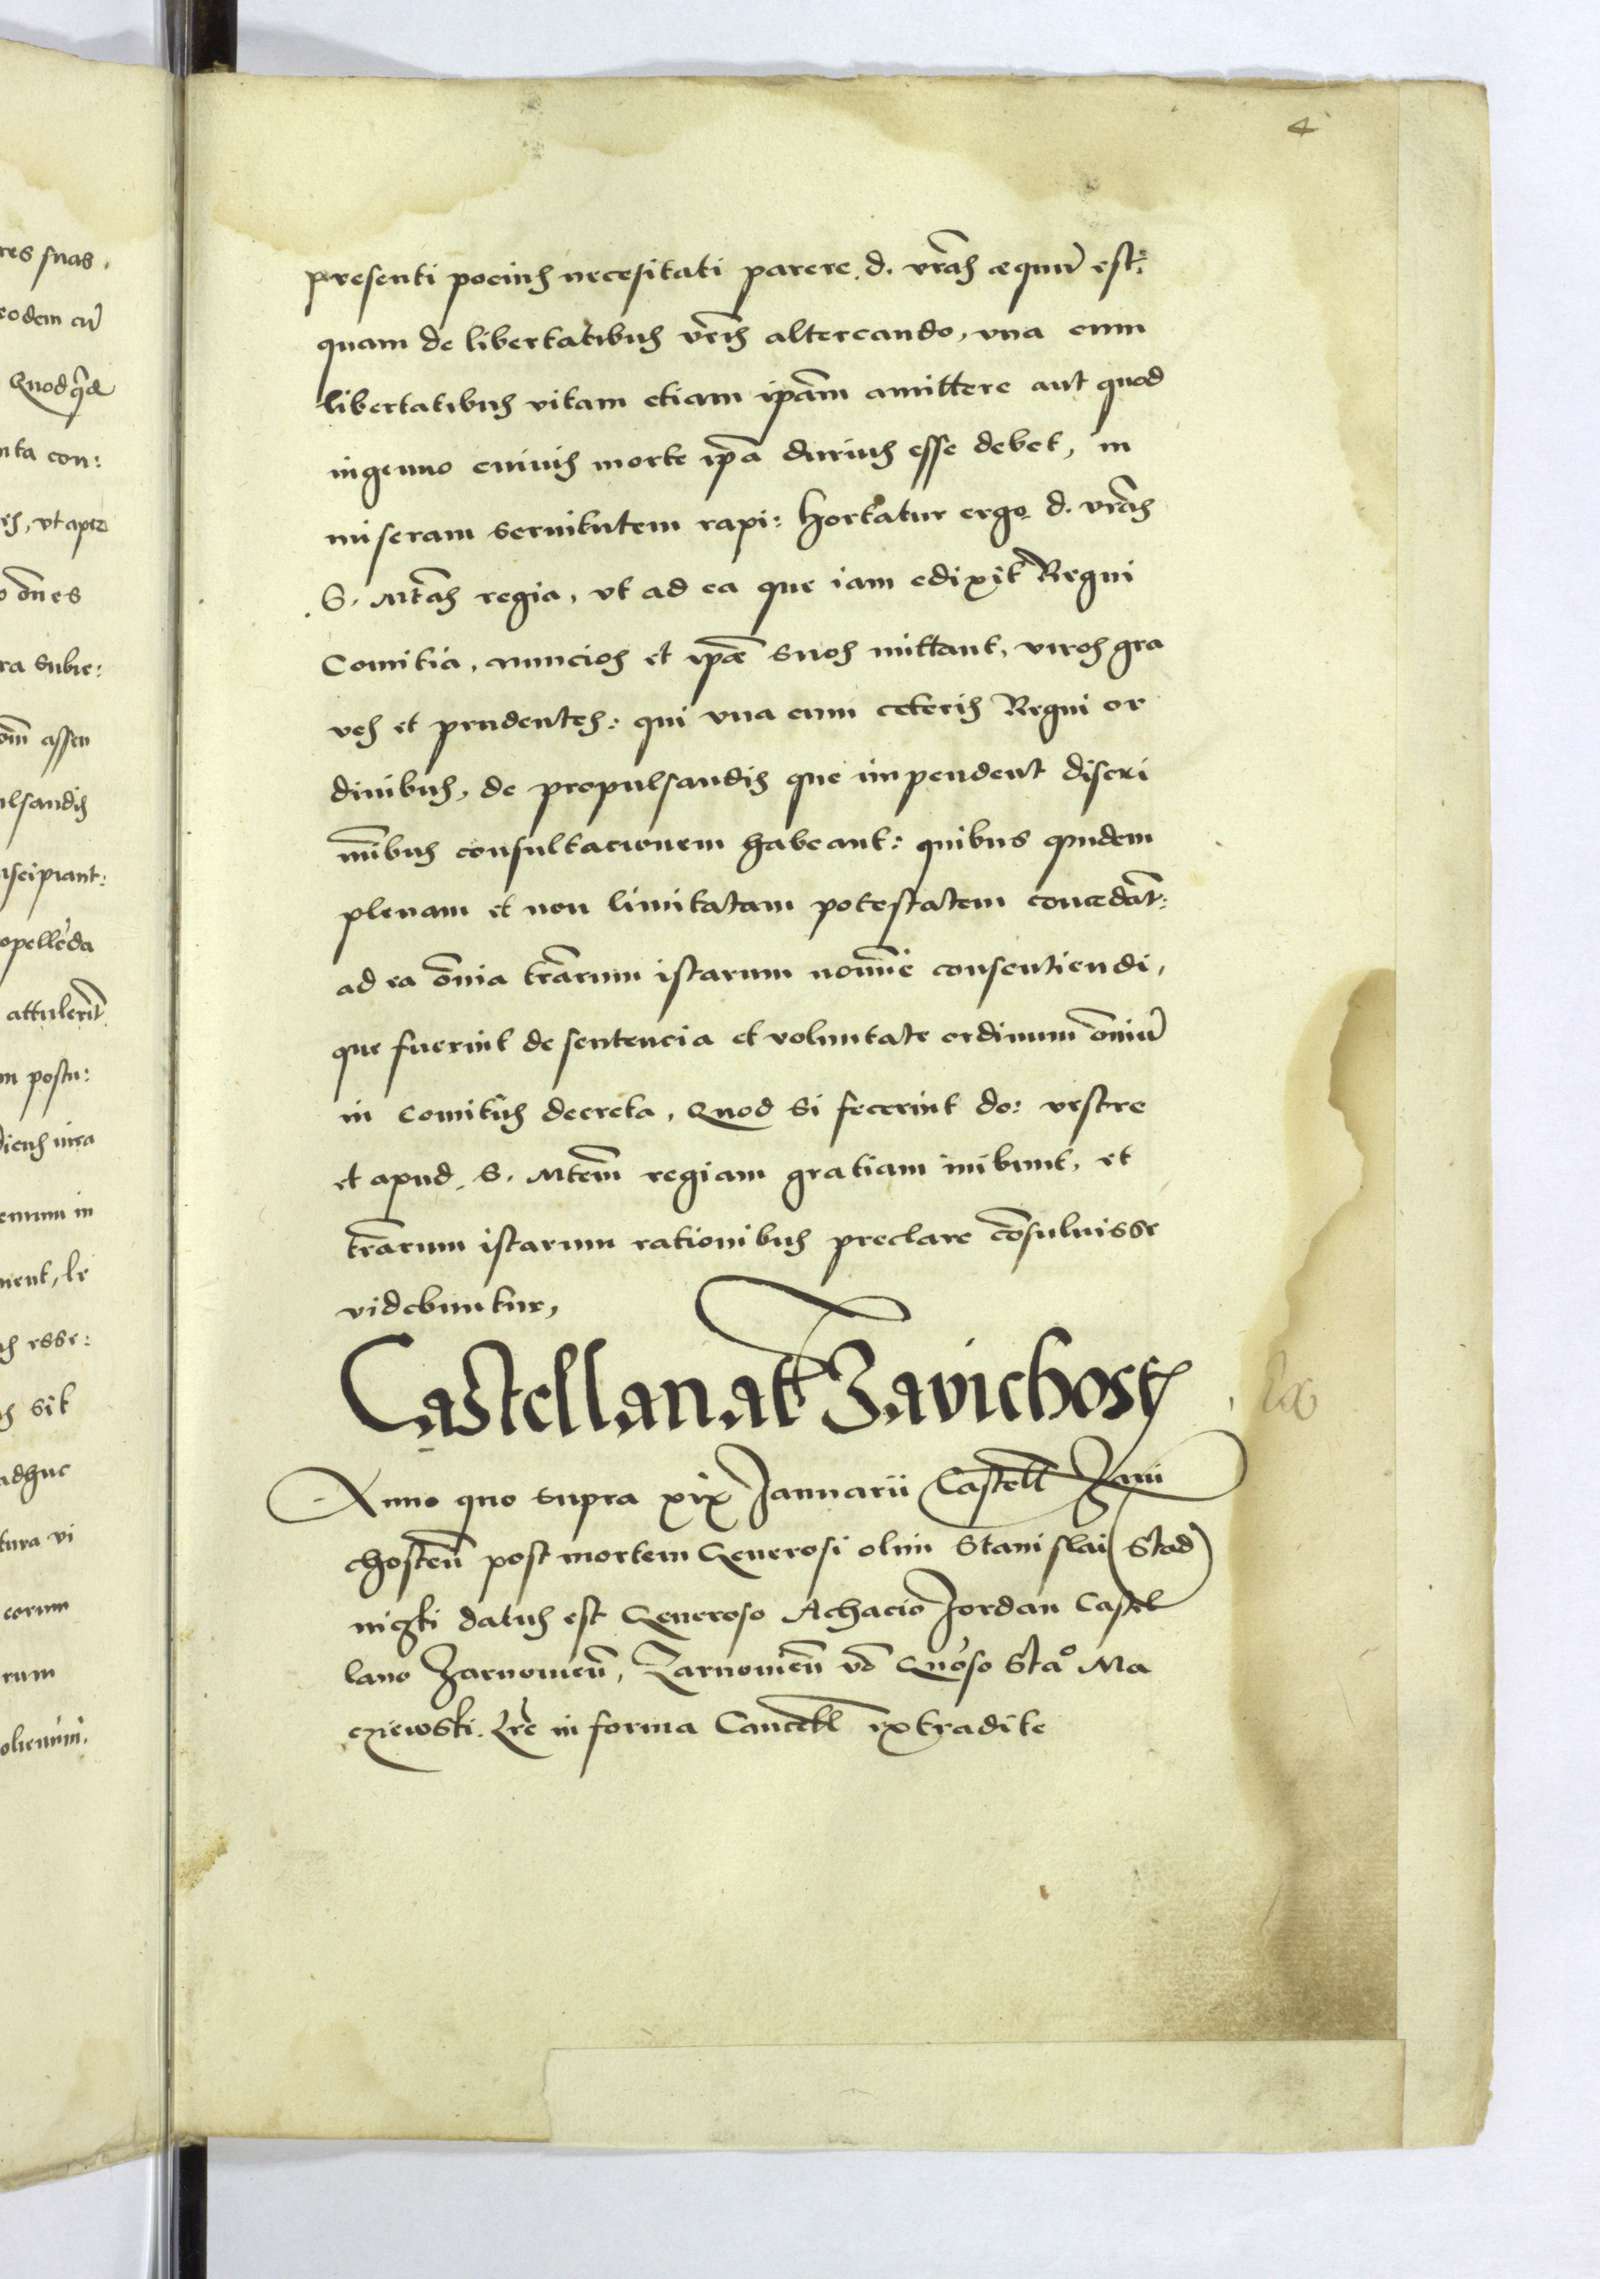 4
presenti pocius necessitati parere d. vras aequu est:
quam de libertatibus vris altercando, vna cum
libertatibus vitam etiam ipam amittere aut quod
ingenuo cuiuis morte ipa durius esse debet, in
miseram seruitutem rapi: hortatur ergo d. vras
S. Mtas regia, vt ad ea que iam edixit Regni
Comitia, nuncios et ipae suos mittant, viros gra
ves et prudentes: qui vna cum ceteris Regni or
dinibus, de propulsandis que impendent discri
minibus consultacionem habeant: quibus quidem
plenam et non limitatam potestatem concedat:
ad ea omia trarum istarum nomine consentiendi,
que fuerint de sentencia et voluntate ordinum omniu
in Comitiis decreta, Quod si fecerint do: vestre
et apud S. Mtem regiam gratiam inibunt, et
trarum istarum rationibus preclare cosuluisse
videbuntur,
Castellanat Zavichost
Anno quo supra xix Januarii Castell Zaui
chosten post mortem Generosi olim Stanislai Stad
niczki datus est Generoso Achacio Jordan Castel
lano Zarnouien, Zarnouien vo Gnoso Stao Ma
cziewski. Lre in forma Cancell extradite
res suas,
eodem cu
Quodq
nta con:
omnes
ra subie:
assen
ulsandis
uscipiant:
opelleda
attulerit
m postu:
enum in
nent, le
esse:
sit
adhuc
tura vi
eorum
rum